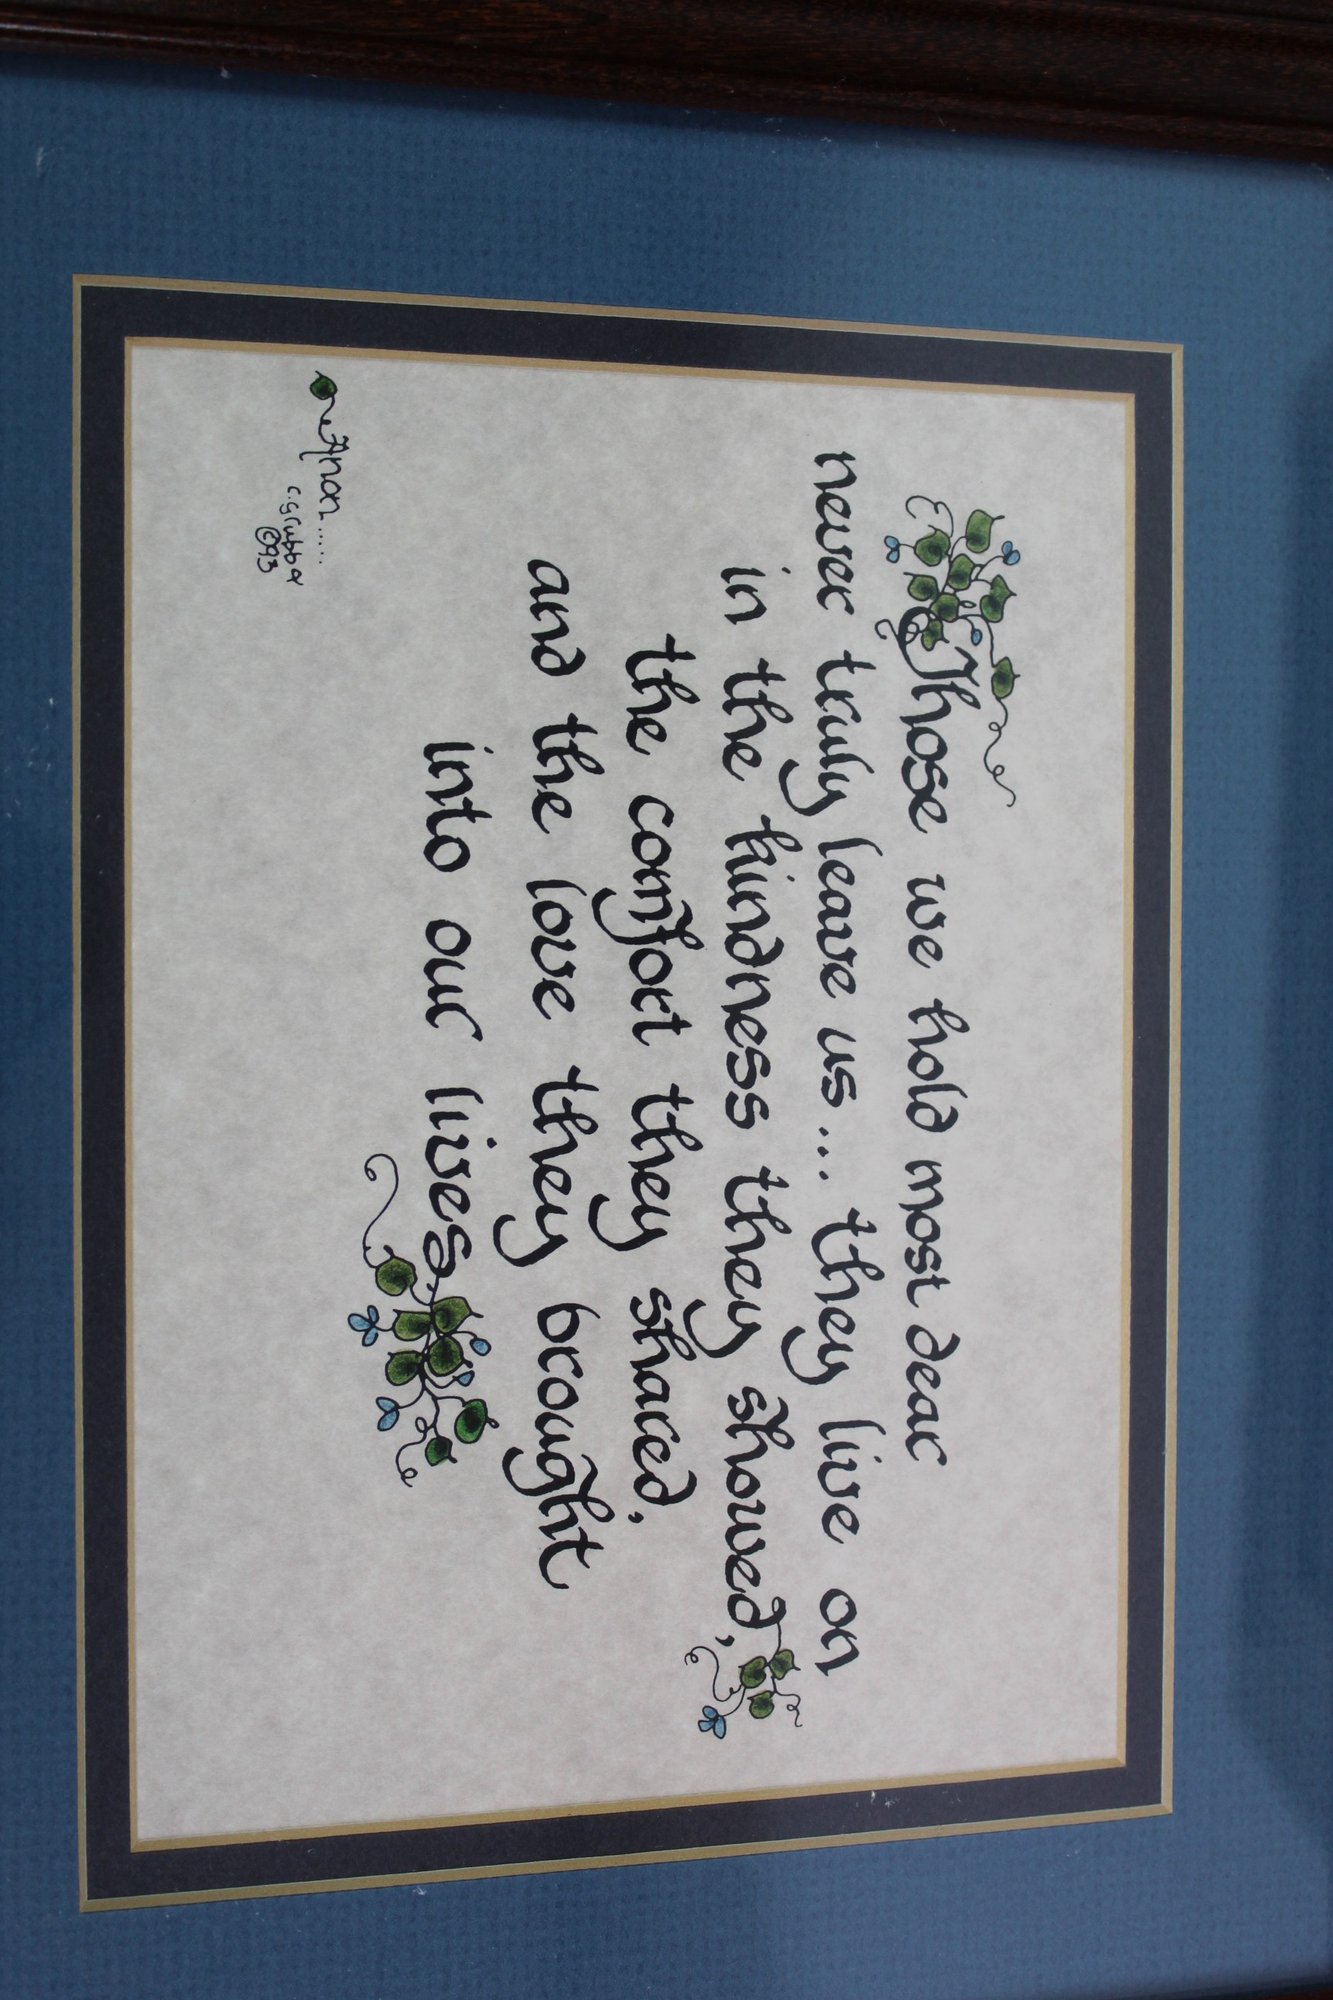 Those we hold most dear
never truly leave us... they live on
in the kindness they showed,
the comfort they shared,
and the love they brought
into our lives.
Anon......
©93